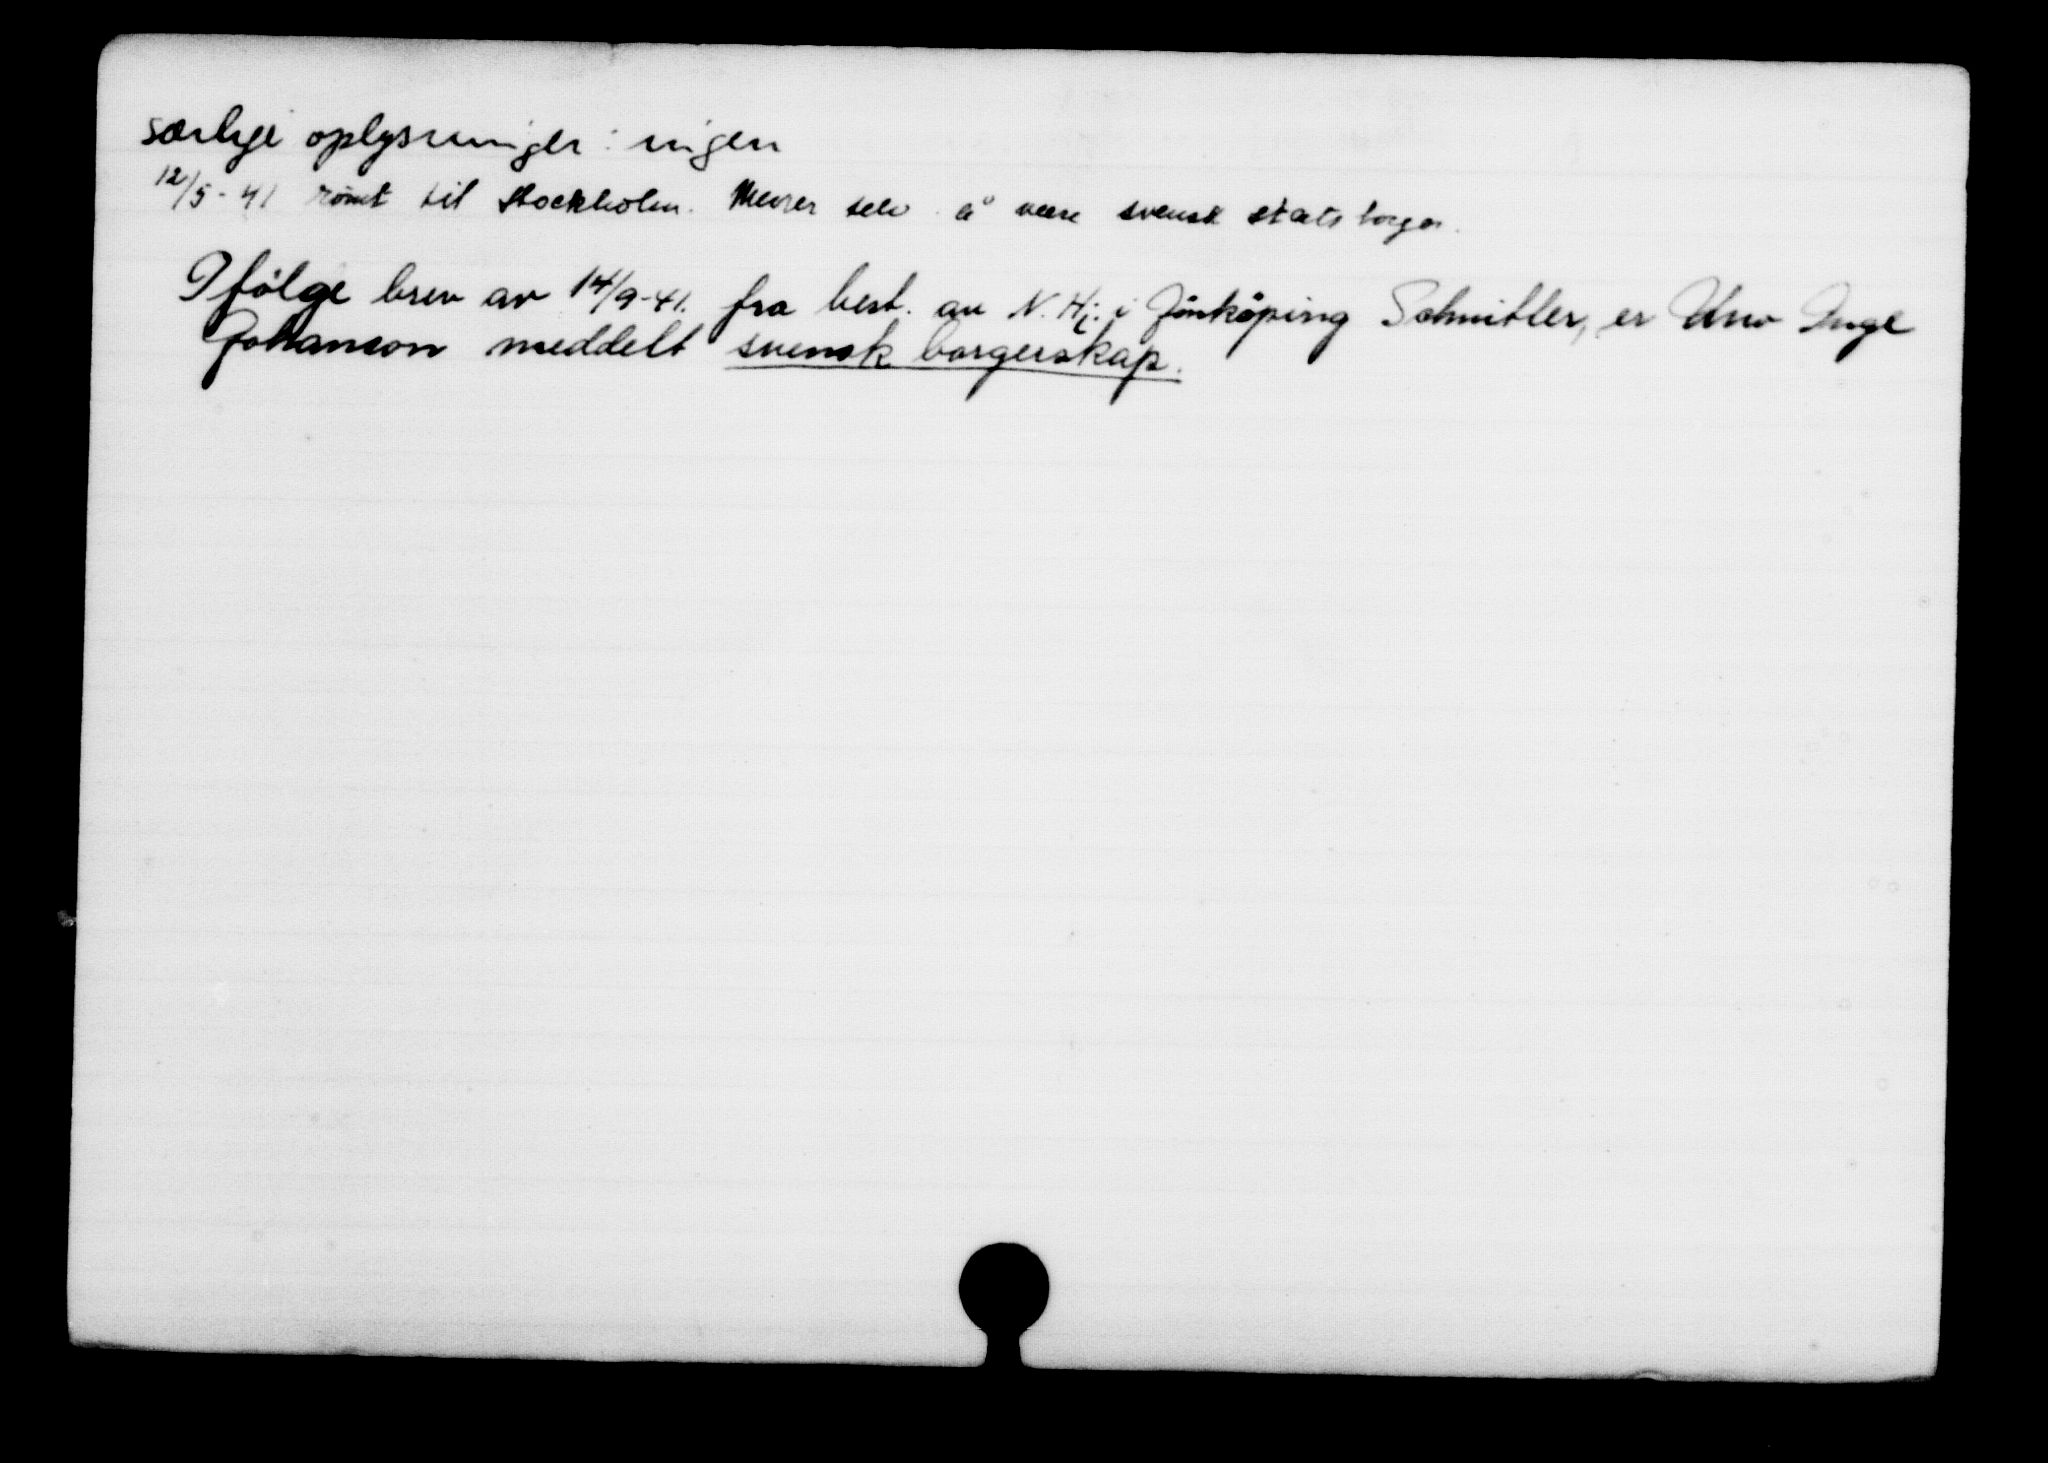 særlige oplysninger: ingen
12/5-41 römt til Stockholm. Mener selv å være svensk statsborger.
Ifölge brev av 14/9-41. fra best. av N.Hj. i Jönköping Schnitler, er Uno Inge
Johanson meddelt svensk borgerskap.